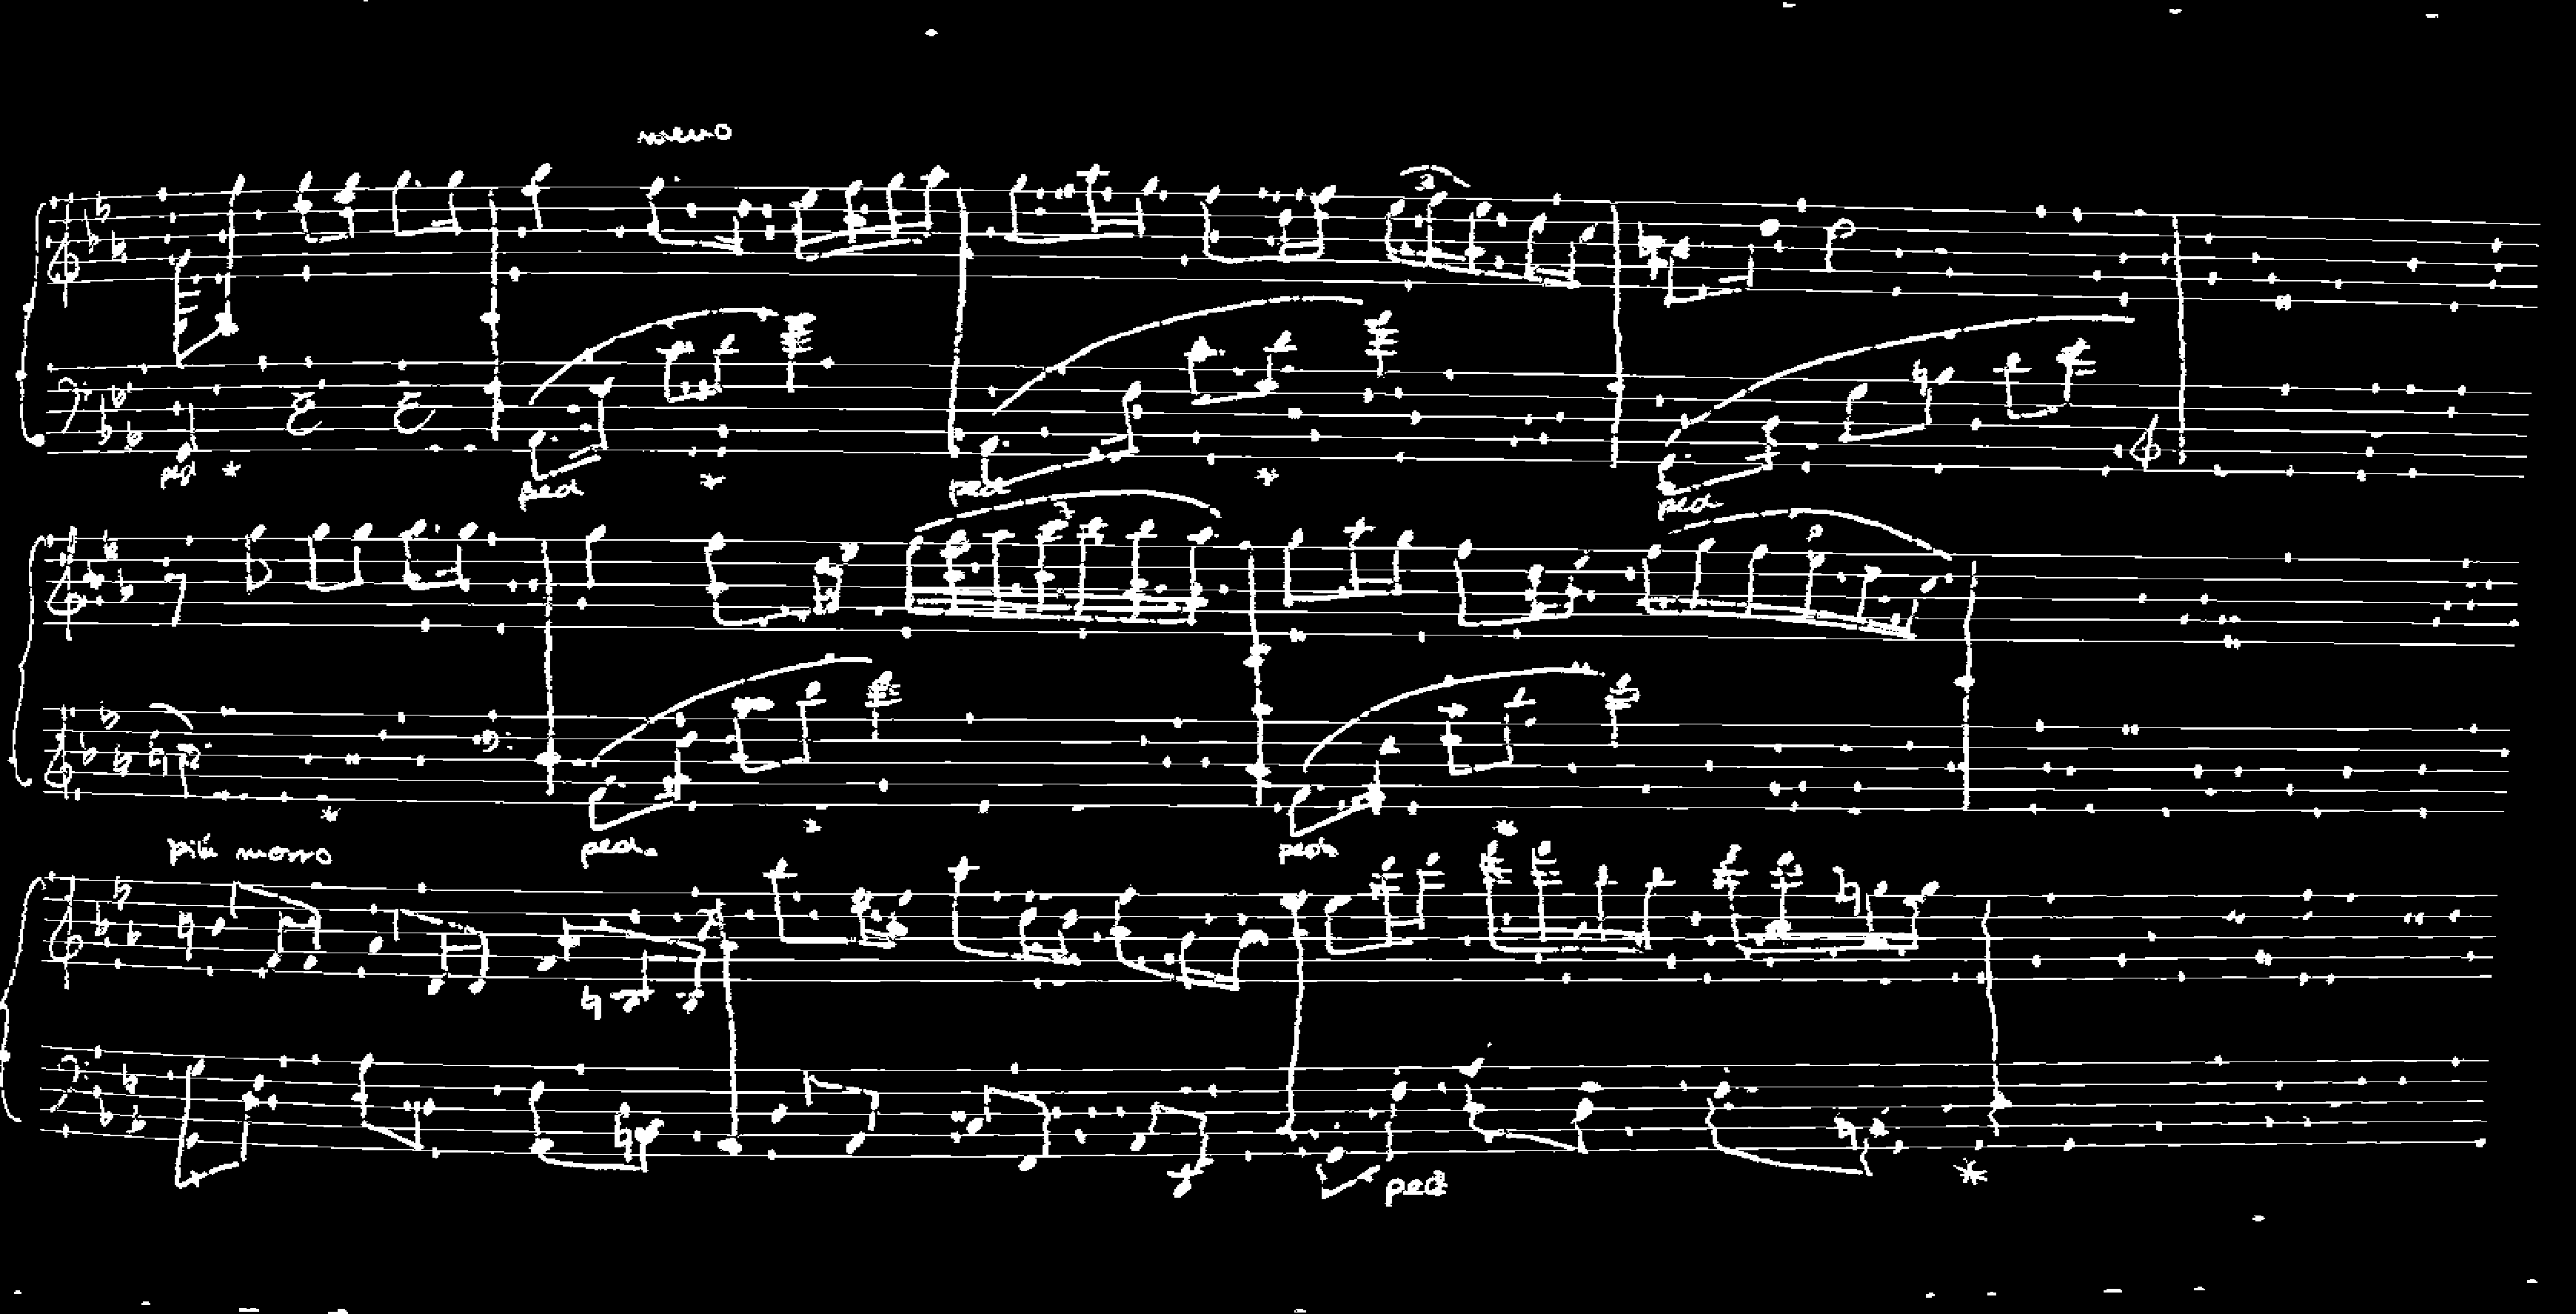 meno
3
ped *
ped * ped * ped
7
* ped. * ped. *
più mosso
ped *